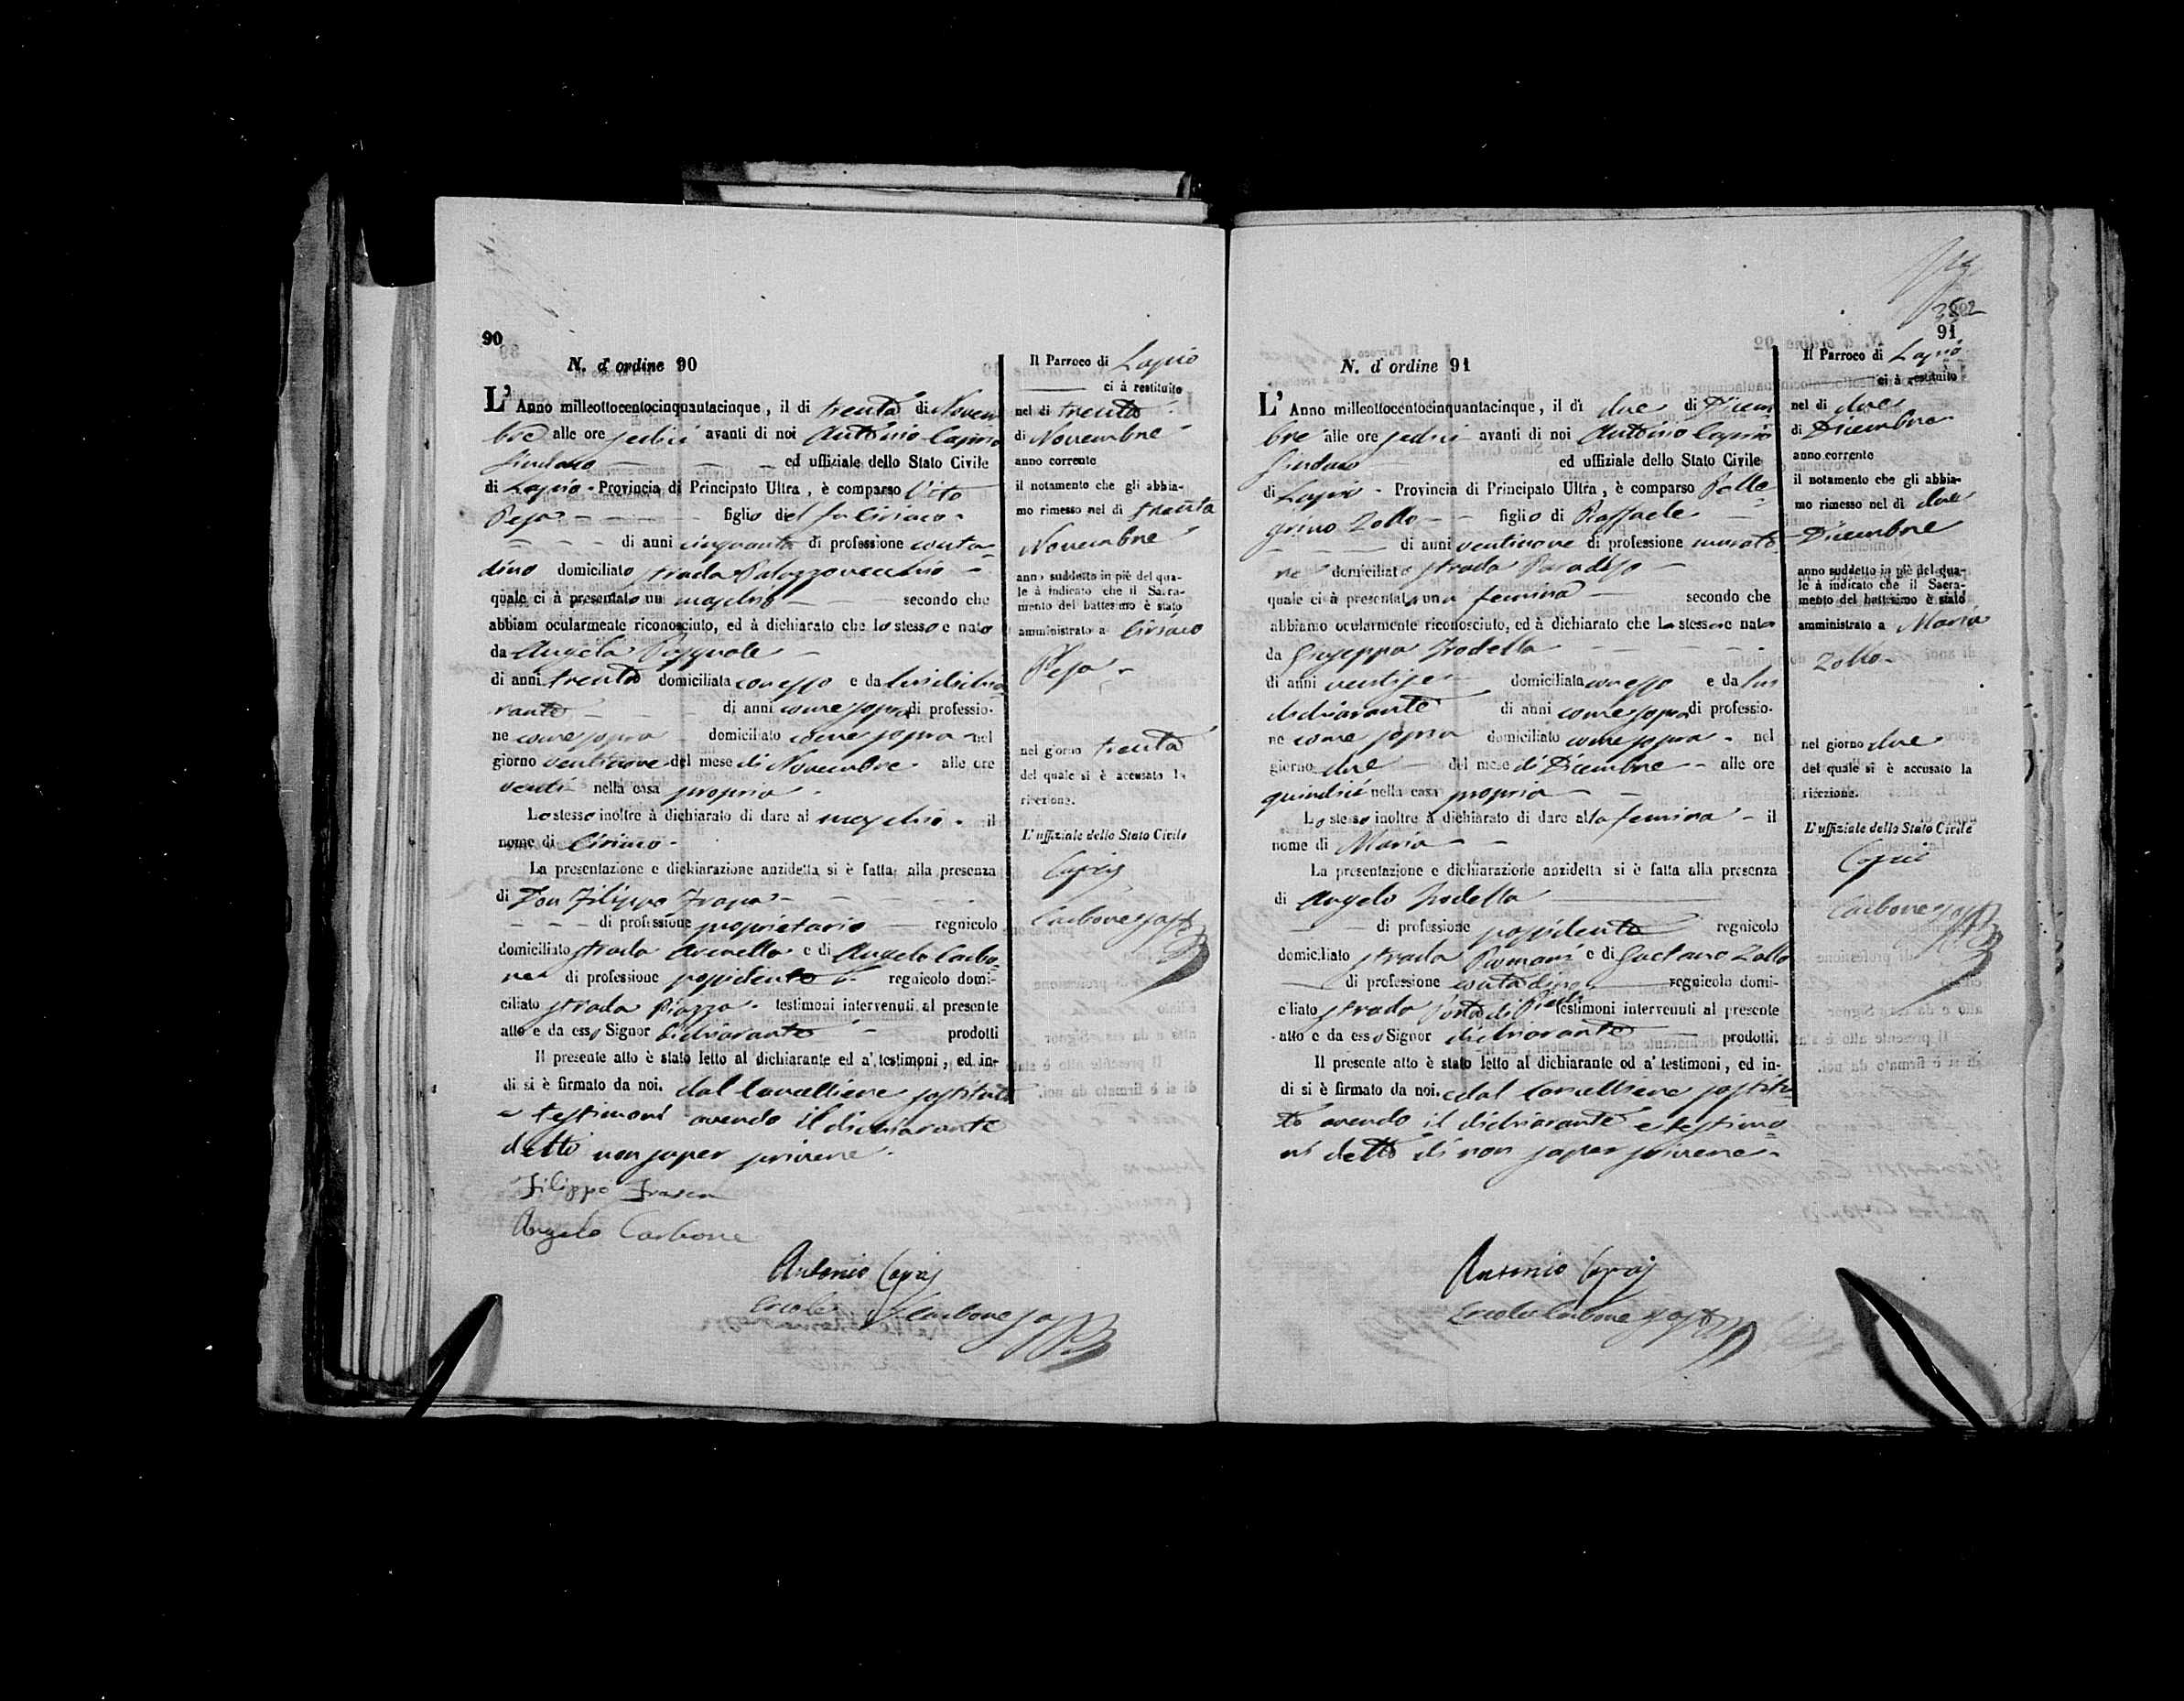 90
N. d' ordine 90
L' Anno milleottocentocinquantacinque, il dì trenta di Novem
bre alle ore sedici avanti di noi Antonio Caprio
Sindaco ed uffiziale dello Stato Civile
di Lapio Provincia di Principato Ultra, è comparso Vito
Pesa figlio del fu Ciriaco
di anni cinquanta di professione conta
dino domiciliato strada Palazzovecchio
quale ci à presentato un maschio secondo che
abbiam ocularmente riconosciuto, ed à dichiarato che lo stesso e nato
da Angela Pasquale
di anni trenta domiciliata con esso e da lui dichia
rante di anni come sopra di professio-
ne come sopra domiciliato come sopra nel
giorno ventinove del mese di Novembre alle ore
venti nella casa propria
Lo stesso inoltre à dichiarato di dare al maschio il
nome di Ciriaco
La presentazione e dichiarazione anzidetta si è fatta alla presenza
di Don Filippo
di professione proprietario regnicolo
domiciliato strada e di Angelo Carbo
ne di professione possidente regnicolo domi-
ciliato strada Piazza testimoni intervenuti al presente
atto e da esso Signor dichiarante prodotti
Il presente atto è stato letto al dichiarante ed a' testimoni, ed in-
di si è firmato da noi. dal Cancelliere sostituto
e testimoni avendo il dichiarante
detto non saper scrivere
Filippo
Angelo Carbone
Antonio Caprio
Ercole Carbone sost
Il Parroco di Lapio
ci à restituito
nel dì trenta
di Novembre
anno corrente
il notamento che gli abbia-
mo rimesso nel dì trenta
Novembre
anno suddetto in piè del qua-
le à indicato che il Sacra-
mento del battesimo è stato
amministrato a Ciriaco
Pesa
nel giorno trenta
del quale si è accusato la
ricezione.
L' uffiziale dello Stato Civile
Caprio
Carbone sost
91
N. d' ordine 91
L' Anno milleottocentocinquantacinque, il dì due di Dicem
bre alle ore sedici avanti di noi Antonio Caprio
Sindaco ed uffiziale dello Stato Civile
di Lapio Provincia di Principato Ultra, è comparso Pelle
grino Zollo figlio di Raffaele
di anni ventinove di professione murato
re domiciliato strada Paradiso
quale ci à presentata una femina secondo che
abbiamo ocularmente riconosciuto, ed à dichiarato che La stessa e nata
da Giuseppa
di anni ventisei domiciliata con esso e da lui
dichiarante di anni come sopra di professio-
ne come sopra domiciliato come sopra nel
giorno due del mese di Dicembre alle ore
quindici nella casa propria
Lo stesso inoltre à dichiarato di dare alla femina il
nome di Maria
La presentazione e dichiarazione anzidetta si è fatta alla presenza
di Angelo
di professione possidente regnicolo
domiciliato strada e di Gaetano Zollo
di professione contadino regnicolo domi-
ciliato strada Porta di testimoni intervenuti al presente
atto e da esso Signor dichiarante prodotti.
Il presente atto è stato letto al dichiarante ed a' testimoni, ed in-
di si è firmato da noi. e dal Cancelliere sostitu
to avendo il dichiarante e testimo
ni detto di non saper scrivere
Antonio Caprio
Ercole Carbone sost
Il Parroco di Lapio
ci à restituito
nel dì due
di Dicembre
anno corrente
il notamento che gli abbia-
mo rimesso nel dì due
Dicembre
anno suddetto in piè del qua-
le à indicato che il Sacra-
mento del battesimo è stato
amministrato a Maria
Zollo
nel giorno due
del quale si è accusato la
ricezione.
L' uffiziale dello Stato Civile
Caprio
Carbone sost